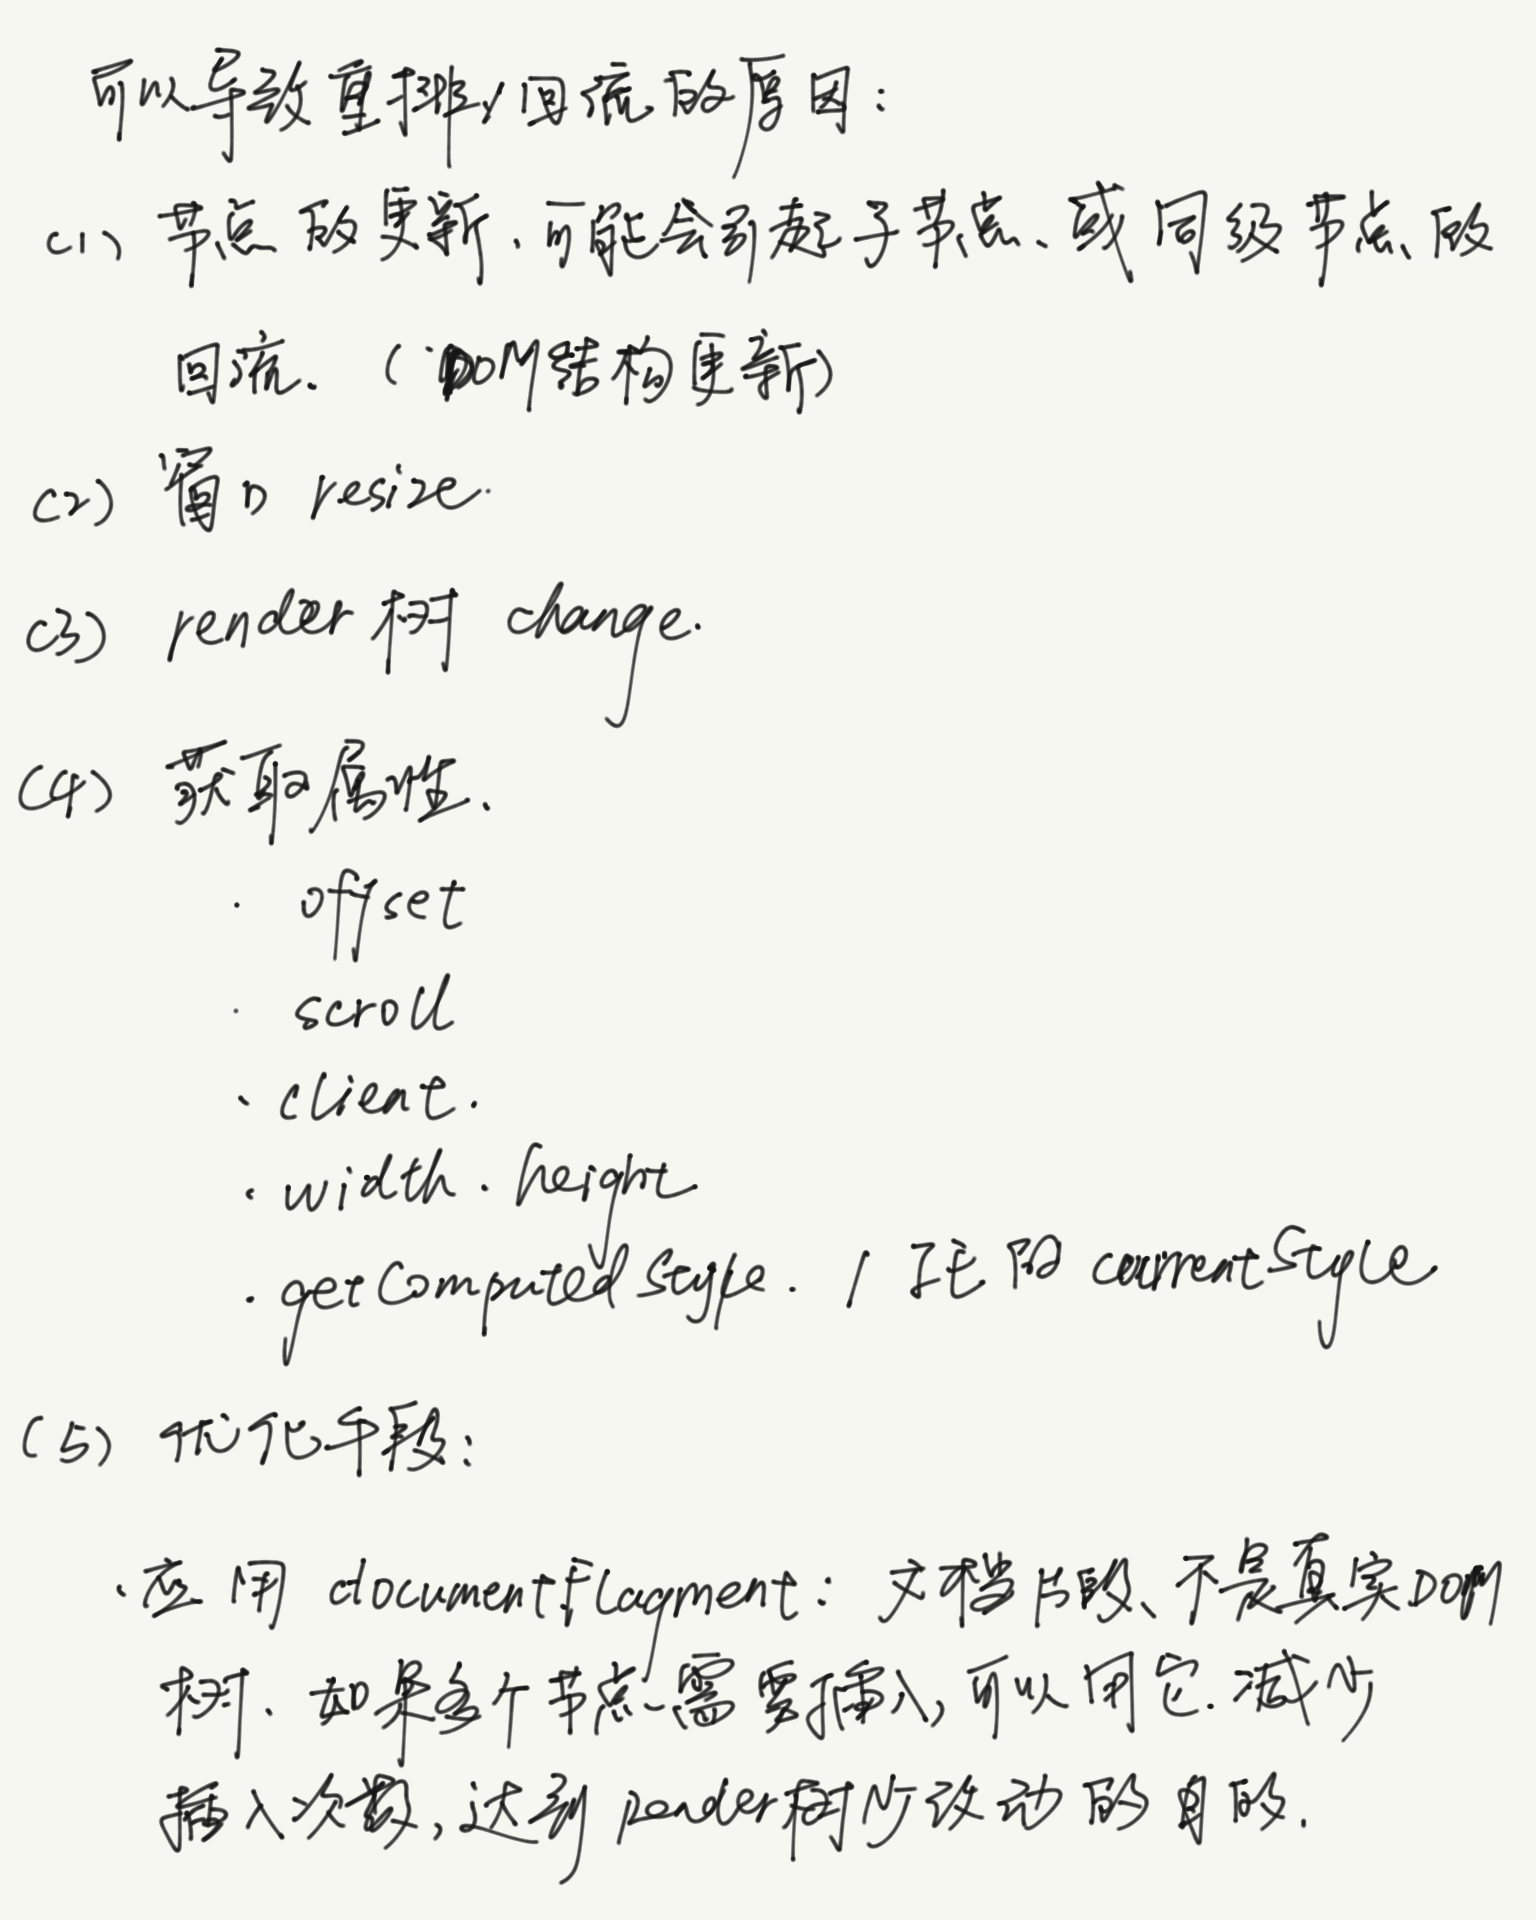 可以导致重排/回流的原因:
(1) 节点的更新、可能会引起子节点、或同级节点的
回流. (DOM结构更新)
(2) 窗口 resize.
(3) render 树 change.
(4) 获取属性.
· offset
· scroll
· client.
· width . height
· getComputedStyle. / IE的 currentStyle
(5) 优化手段:
· 应用 documentflagment: 文档片段、不是真实DOM
树、如果多个节点需要插入,可以用它.减少
插入次数,达到render树少改动的目的.